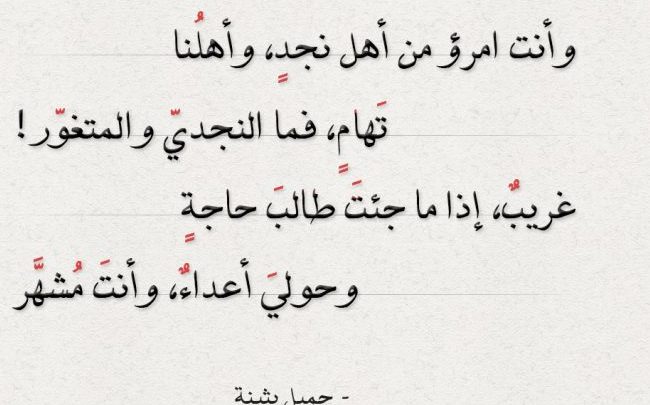 وأنت امرؤ من أهل نجدٍ، وأهلُنا
تَهامٍ، فما النجديّ والمتغوّر!
غريبٌ، إذا ما جئتَ طالبَ حاجةٍ
وحوليَ أعداءٌ، وأنتَ مُشهَّر
- جميل بثينة